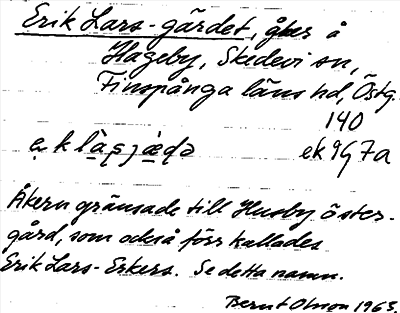 Erik Lars-gärdet, åker å
Hageby, Skedevi sn,
Finspånga läns hd, Östg.
140
ek 9G 7a
Åkern gränsade till Husby Öster-
gård, som också förr kallades
Erik Lars-Eskers. Se detta namn.
Bernt Olsson 1963.